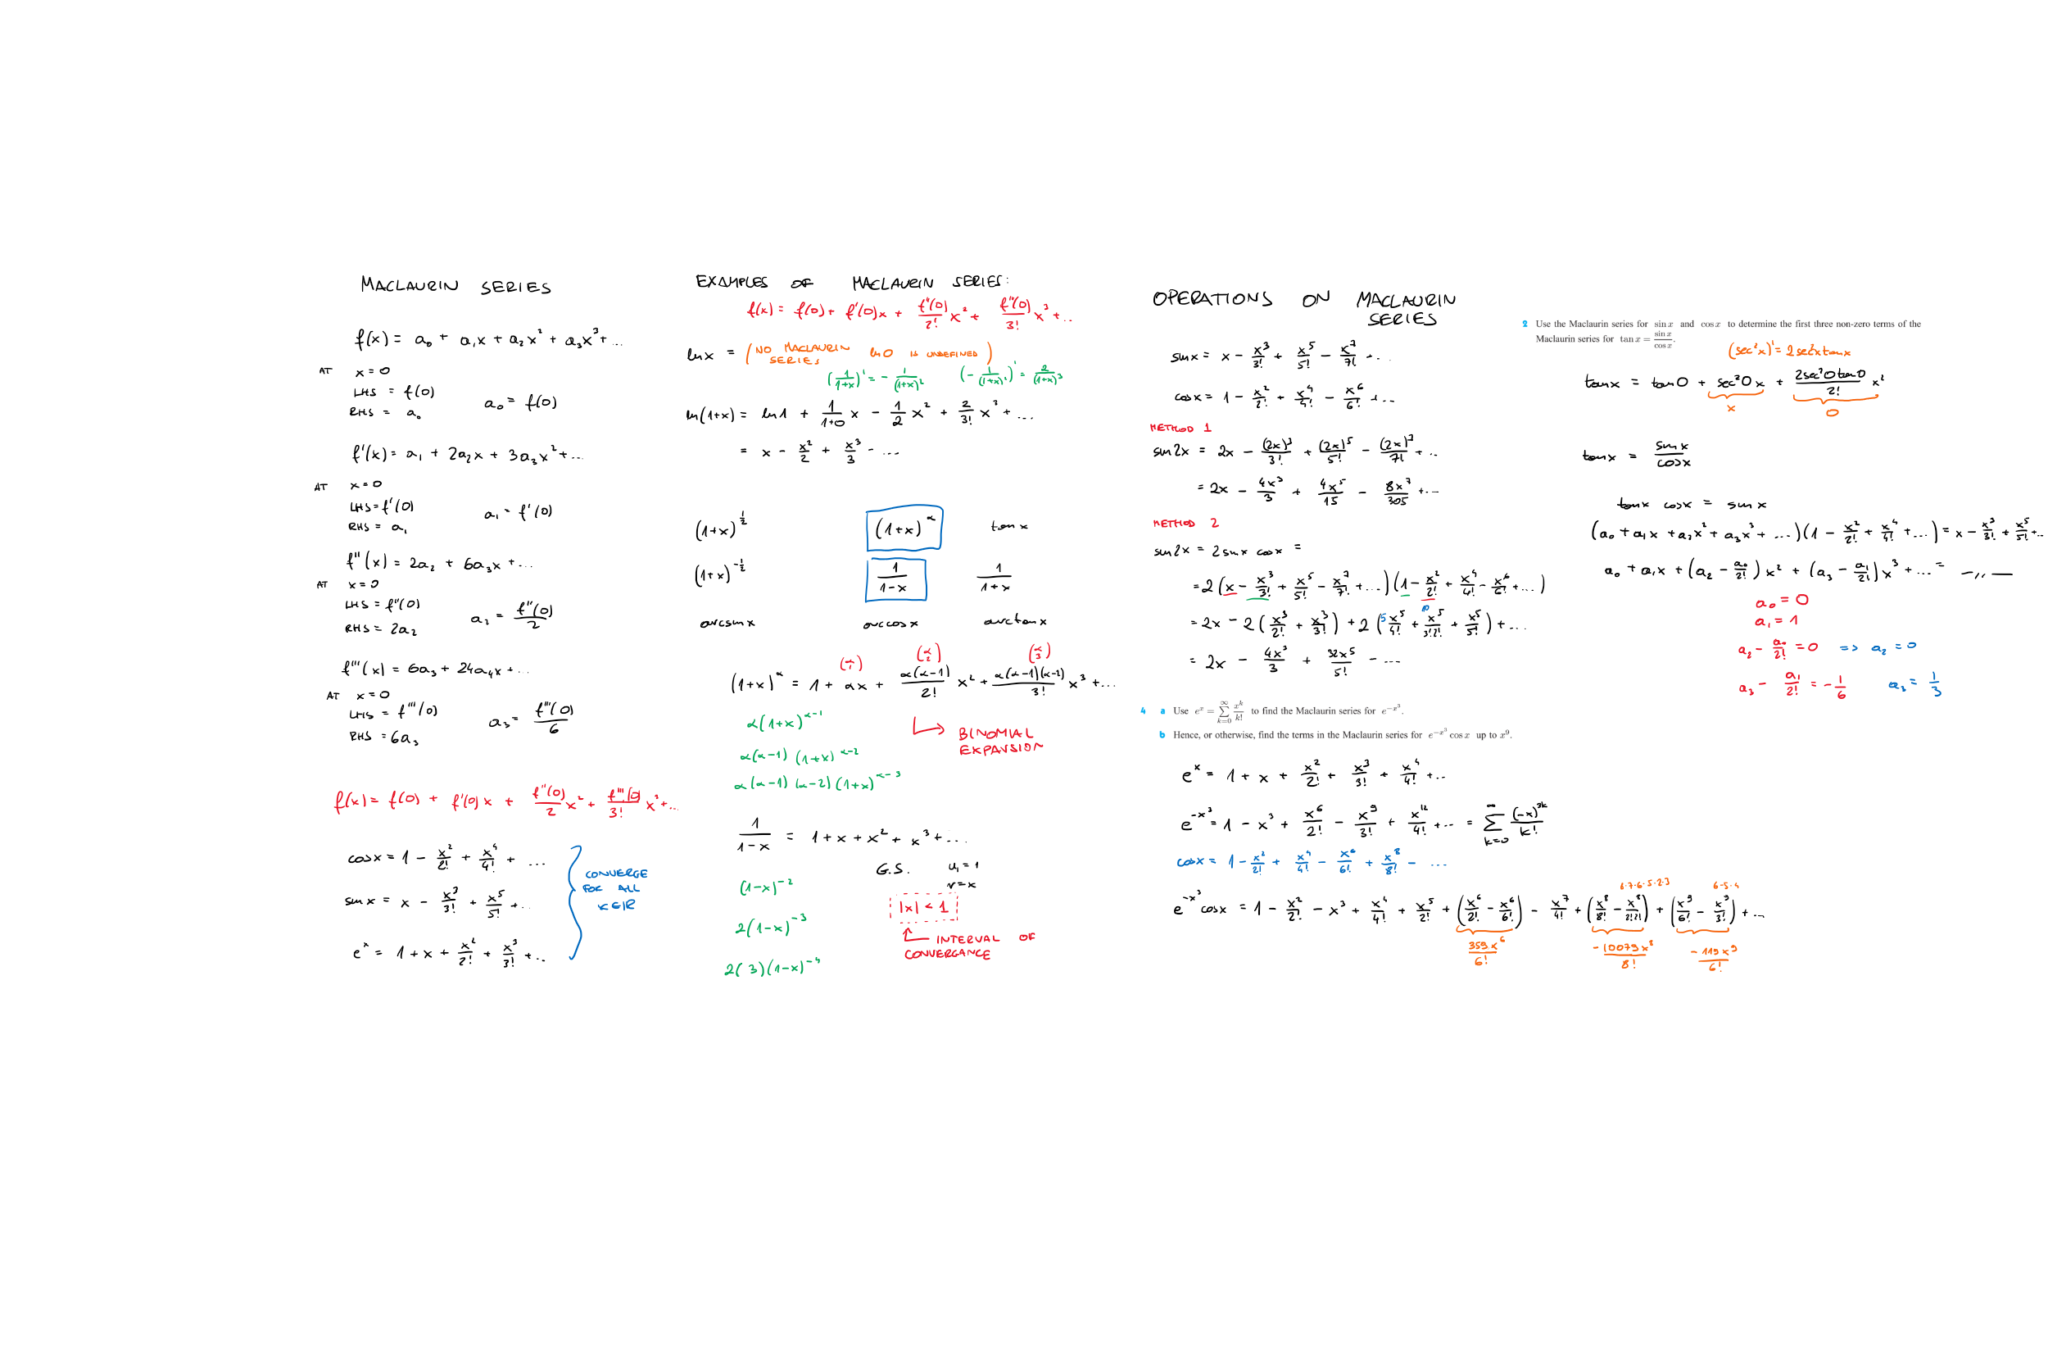 MACLAURIN SERIES
f(x) = a₀ + a₁x + a₂x² + a₃x³ + ...
AT x = 0
LHS = f(0)
RHS = a₀
a₀ = f(0)
f'(x) = a₁ + 2a₂x + 3a₃x² + ...
AT x = 0
LHS = f'(0)
RHS = a₁
a₁ = f'(0)
f''(x) = 2a₂ + 6a₃x + ...
AT x = 0
LHS = f''(0)
RHS = 2a₂
a₂ = f''(0)/2
f'''(x) = 6a₃ + 24a₄x + ...
AT x = 0
LHS = f'''(0)
RHS = 6a₃
a₃ = f'''(0)/6
f(x) = f(0) + f'(0)x + f''(0)/2 x² + f'''(0)/3! x³ + ...
cos x = 1 - x²/2! + x⁴/4! + ...
sin x = x - x³/3! + x⁵/5! + ..
eˣ = 1 + x + x²/2! + x³/3! + ..
CONVERGE
FOR ALL
x∈ℝ
EXAMPLES OF MACLAURIN SERIES:
f(x) = f(0) + f'(0)x + f''(0)/2! x² + f'''(0)/3! x³ + ..
ln x = (NO MACLAURIN SERIES ln 0 IS UNDEFINED)
(1/(1+x))' = - 1/(1+x)² (- 1/(1+x)²)' = 2/(1+x)³
ln(1+x) = ln 1 + 1/(1+0) x - 1/2 x² + 2/3! x³ + ...
= x - x²/2 + x³/3 - ...
(1+x)^(1/2) (1+x)^α tan x
(1+x)^(-1/2) 1/(1-x) 1/(1+x)
arcsin x arccos x arctan x
(α 1) (α 2) (α 3)
(1+x)^α = 1 + αx + α(α-1)/2! x² + α(α-1)(α-2)/3! x³ + ...
α(1+x)^(α-1)
α(α-1)(1+x)^(α-2)
α(α-1)(α-2)(1+x)^(α-3)
BINOMIAL
EXPANSION
1/(1-x) = 1 + x + x² + x³ + ...
G.S. u₁ = 1
r = x
(1-x)⁻²
2(1-x)⁻³
2(3)(1-x)⁻⁴
|x| < 1
INTERVAL OF
CONVERGANCE
OPERATIONS ON MACLAURIN
SERIES
sin x = x - x³/3! + x⁵/5! - x⁷/7! + ..
cos x = 1 - x²/2! + x⁴/4! - x⁶/6! + ...
METHOD 1
sin 2x = 2x - (2x)³/3! + (2x)⁵/5! - (2x)⁷/7! + ..
= 2x - 4x³/3 + 4x⁵/15 - 8x⁷/305 + ...
METHOD 2
sin 2x = 2 sin x cos x =
= 2(x - x³/3! + x⁵/5! - x⁷/7! + ...)(1 - x²/2! + x⁴/4! - x⁶/6! + ...)
= 2x - 2(x³/2! + x³/3!) + 2(5 x⁵/4! + 10 x⁵/3!2! + x⁵/5!) + ...
= 2x - 4x³/3 + 32x⁵/5! - ...
4 a Use eˣ = ∑_{k=0}^{∞} xᵏ/k! to find the Maclaurin series for e^(-x³).
b Hence, or otherwise, find the terms in the Maclaurin series for e^(-x³) cos x up to x⁹.
eˣ = 1 + x + x²/2! + x³/3! + x⁴/4! + ..
e^(-x³) = 1 - x³ + x⁶/2! - x⁹/3! + x¹²/4! + ... = ∑_{k=0}^{∞} (-x)^(3k)/k!
cos x = 1 - x²/2! + x⁴/4! - x⁶/6! + x⁸/8! - ...
8·7·6·5·2·3 6·5·4
e^(-x³) cos x = 1 - x²/2! - x³ + x⁴/4! + x⁵/2! + (x⁶/2! - x⁶/6!) - x⁷/4! + (x⁸/8! - x⁸/2!2!) + (x⁹/6! - x⁹/3!) + ...
359x⁶/6! -10079x⁸/8! -119x⁹/6!
2 Use the Maclaurin series for sin x and cos x to determine the first three non-zero terms of the
Maclaurin series for tan x = sin x/cos x.
(sec²x)' = 2sec²x tan x
tan x = tan 0 + sec²0 x + 2sec²0 tan 0/2! x²
x 0
tan x = sin x/cos x
tan x cos x = sin x
(a₀ + a₁x + a₂x² + a₃x³ + ...)(1 - x²/2! + x⁴/4! + ...) = x - x³/3! + x⁵/5! + ..
a₀ + a₁x + (a₂ - a₀/2!)x² + (a₃ - a₁/2!)x³ + ... = -,,-
a₀ = 0
a₁ = 1
a₂ - a₀/2! = 0 => a₂ = 0
a₃ - a₁/2! = -1/6 a₃ = 1/3